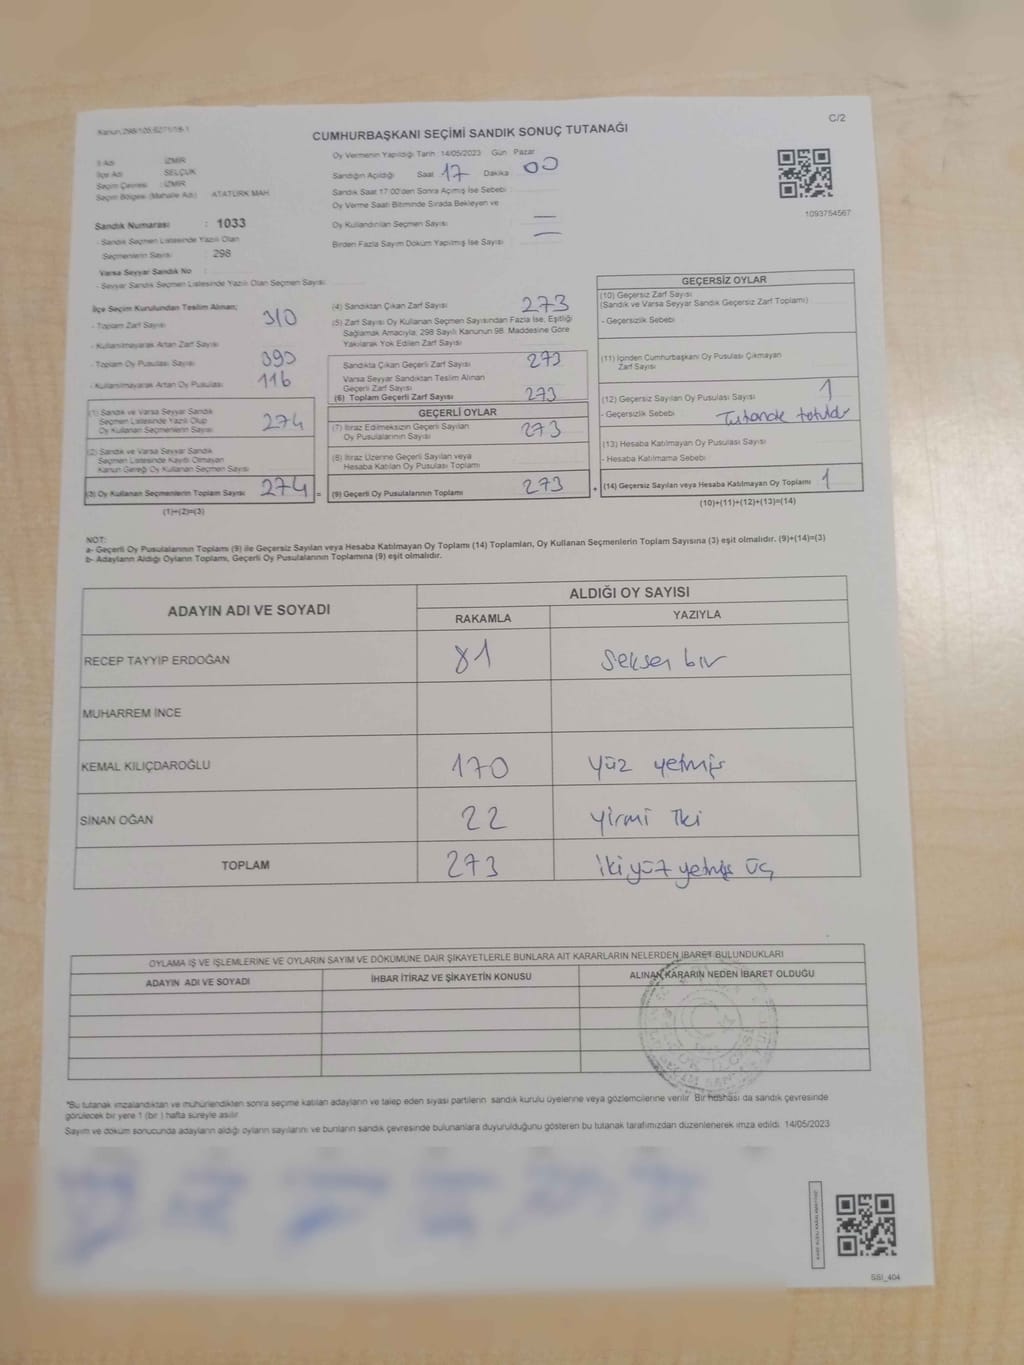 Kanun:298/105;6271/18-1
C/2
CUMHURBAŞKANI SEÇİMİ SANDIK SONUÇ TUTANAĞI
İl Adı : İZMİR
İlçe Adı : SELÇUK
Seçim Çevresi : İZMİR
Seçim Bölgesi (Mahalle Adı) : ATATÜRK MAH.
Sandık Numarası : 1033
- Sandık Seçmen Listesinde Yazılı Olan
Seçmenlerin Sayısı : 298
Varsa Seyyar Sandık No :
- Seyyar Sandık Seçmen Listesinde Yazılı Olan Seçmen Sayısı:
Oy Vermenin Yapıldığı Tarih :14/05/2023 Gün : Pazar
Sandığın Açıldığı Saat 17 Dakika 00
Sandık Saat 17:00'den Sonra Açılmış İse Sebebi :
Oy Verme Saati Bitiminde Sırada Bekleyen ve
Oy Kullandırılan Seçmen Sayısı : —
Birden Fazla Sayım Döküm Yapılmış İse Sayısı : —
1093754567
İlçe Seçim Kurulundan Teslim Alınan;
- Toplam Zarf Sayısı : 310
- Kullanılmayarak Artan Zarf Sayısı :
- Toplam Oy Pusulası Sayısı : 390
- Kullanılmayarak Artan Oy Pusulası : 116
(1) Sandık ve Varsa Seyyar Sandık
Seçmen Listesinde Yazılı Olup
Oy Kullanan Seçmenlerin Sayısı : 274
(2) Sandık ve Varsa Seyyar Sandık
Seçmen Listesinde Kayıtlı Olmayan
Kanun Gereği Oy Kullanan Seçmen Sayısı :
(3) Oy Kullanan Seçmenlerin Toplam Sayısı : 274 =
(1)+(2)=(3)
(4) Sandıktan Çıkan Zarf Sayısı : 273
(5) Zarf Sayısı Oy Kullanan Seçmen Sayısından Fazla İse, Eşitliği
Sağlamak Amacıyla; 298 Sayılı Kanunun 98. Maddesine Göre
Yakılarak Yok Edilen Zarf Sayısı :
Sandıkta Çıkan Geçerli Zarf Sayısı : 273
Varsa Seyyar Sandıktan Teslim Alınan
Geçerli Zarf Sayısı :
(6) Toplam Geçerli Zarf Sayısı : 273
GEÇERLİ OYLAR
(7) İtiraz Edilmeksizin Geçerli Sayılan
Oy Pusulalarının Sayısı : 273
(8) İtiraz Üzerine Geçerli Sayılan veya
Hesaba Katılan Oy Pusulası Toplamı :
(9) Geçerli Oy Pusulalarının Toplamı : 273 +
GEÇERSİZ OYLAR
(10) Geçersiz Zarf Sayısı
(Sandık ve Varsa Seyyar Sandık Geçersiz Zarf Toplamı) :
- Geçersizlik Sebebi :
(11) İçinden Cumhurbaşkanı Oy Pusulası Çıkmayan
Zarf Sayısı :
(12) Geçersiz Sayılan Oy Pusulası Sayısı : 1
- Geçersizlik Sebebi : Tutanak tutuldu
(13) Hesaba Katılmayan Oy Pusulası Sayısı :
- Hesaba Katılmama Sebebi :
(14) Geçersiz Sayılan veya Hesaba Katılmayan Oy Toplamı : 1
(10)+(11)+(12)+(13)=(14)
NOT:
a- Geçerli Oy Pusulalarının Toplamı (9) ile Geçersiz Sayılan veya Hesaba Katılmayan Oy Toplamı (14) Toplamları, Oy Kullanan Seçmenlerin Toplam Sayısına (3) eşit olmalıdır. (9)+(14)=(3)
b- Adayların Aldığı Oyların Toplamı, Geçerli Oy Pusulalarının Toplamına (9) eşit olmalıdır.
ADAYIN ADI VE SOYADI ALDIĞI OY SAYISI
RAKAMLA YAZIYLA
RECEP TAYYİP ERDOĞAN 81 Seksen bir
MUHARREM İNCE
KEMAL KILIÇDAROĞLU 170 yüz yetmiş
SİNAN OĞAN 22 yirmi iki
TOPLAM 273 ikiyüz yetmiş üç
OYLAMA İŞ VE İŞLEMLERİNE VE OYLARIN SAYIM VE DÖKÜMÜNE DAİR ŞİKAYETLERLE BUNLARA AİT KARARLARIN NELERDEN İBARET BULUNDUKLARI
ADAYIN ADI VE SOYADI İHBAR İTİRAZ VE ŞİKAYETİN KONUSU ALINAN KARARIN NEDEN İBARET OLDUĞU
*Bu tutanak imzalandıktan ve mühürlendikten sonra seçime katılan adayların ve talep eden siyasi partilerin sandık kurulu üyelerine veya gözlemcilerine verilir. Bir nüshası da sandık çevresinde
görülecek bir yere 1 (bir ) hafta süreyle asılır.
Sayım ve döküm sonucunda adayların aldığı oyların sayılarını ve bunların sandık çevresinde bulunanlara duyurulduğunu gösteren bu tutanak tarafımızdan düzenlenerek imza edildi. 14/05/2023
SSI_404